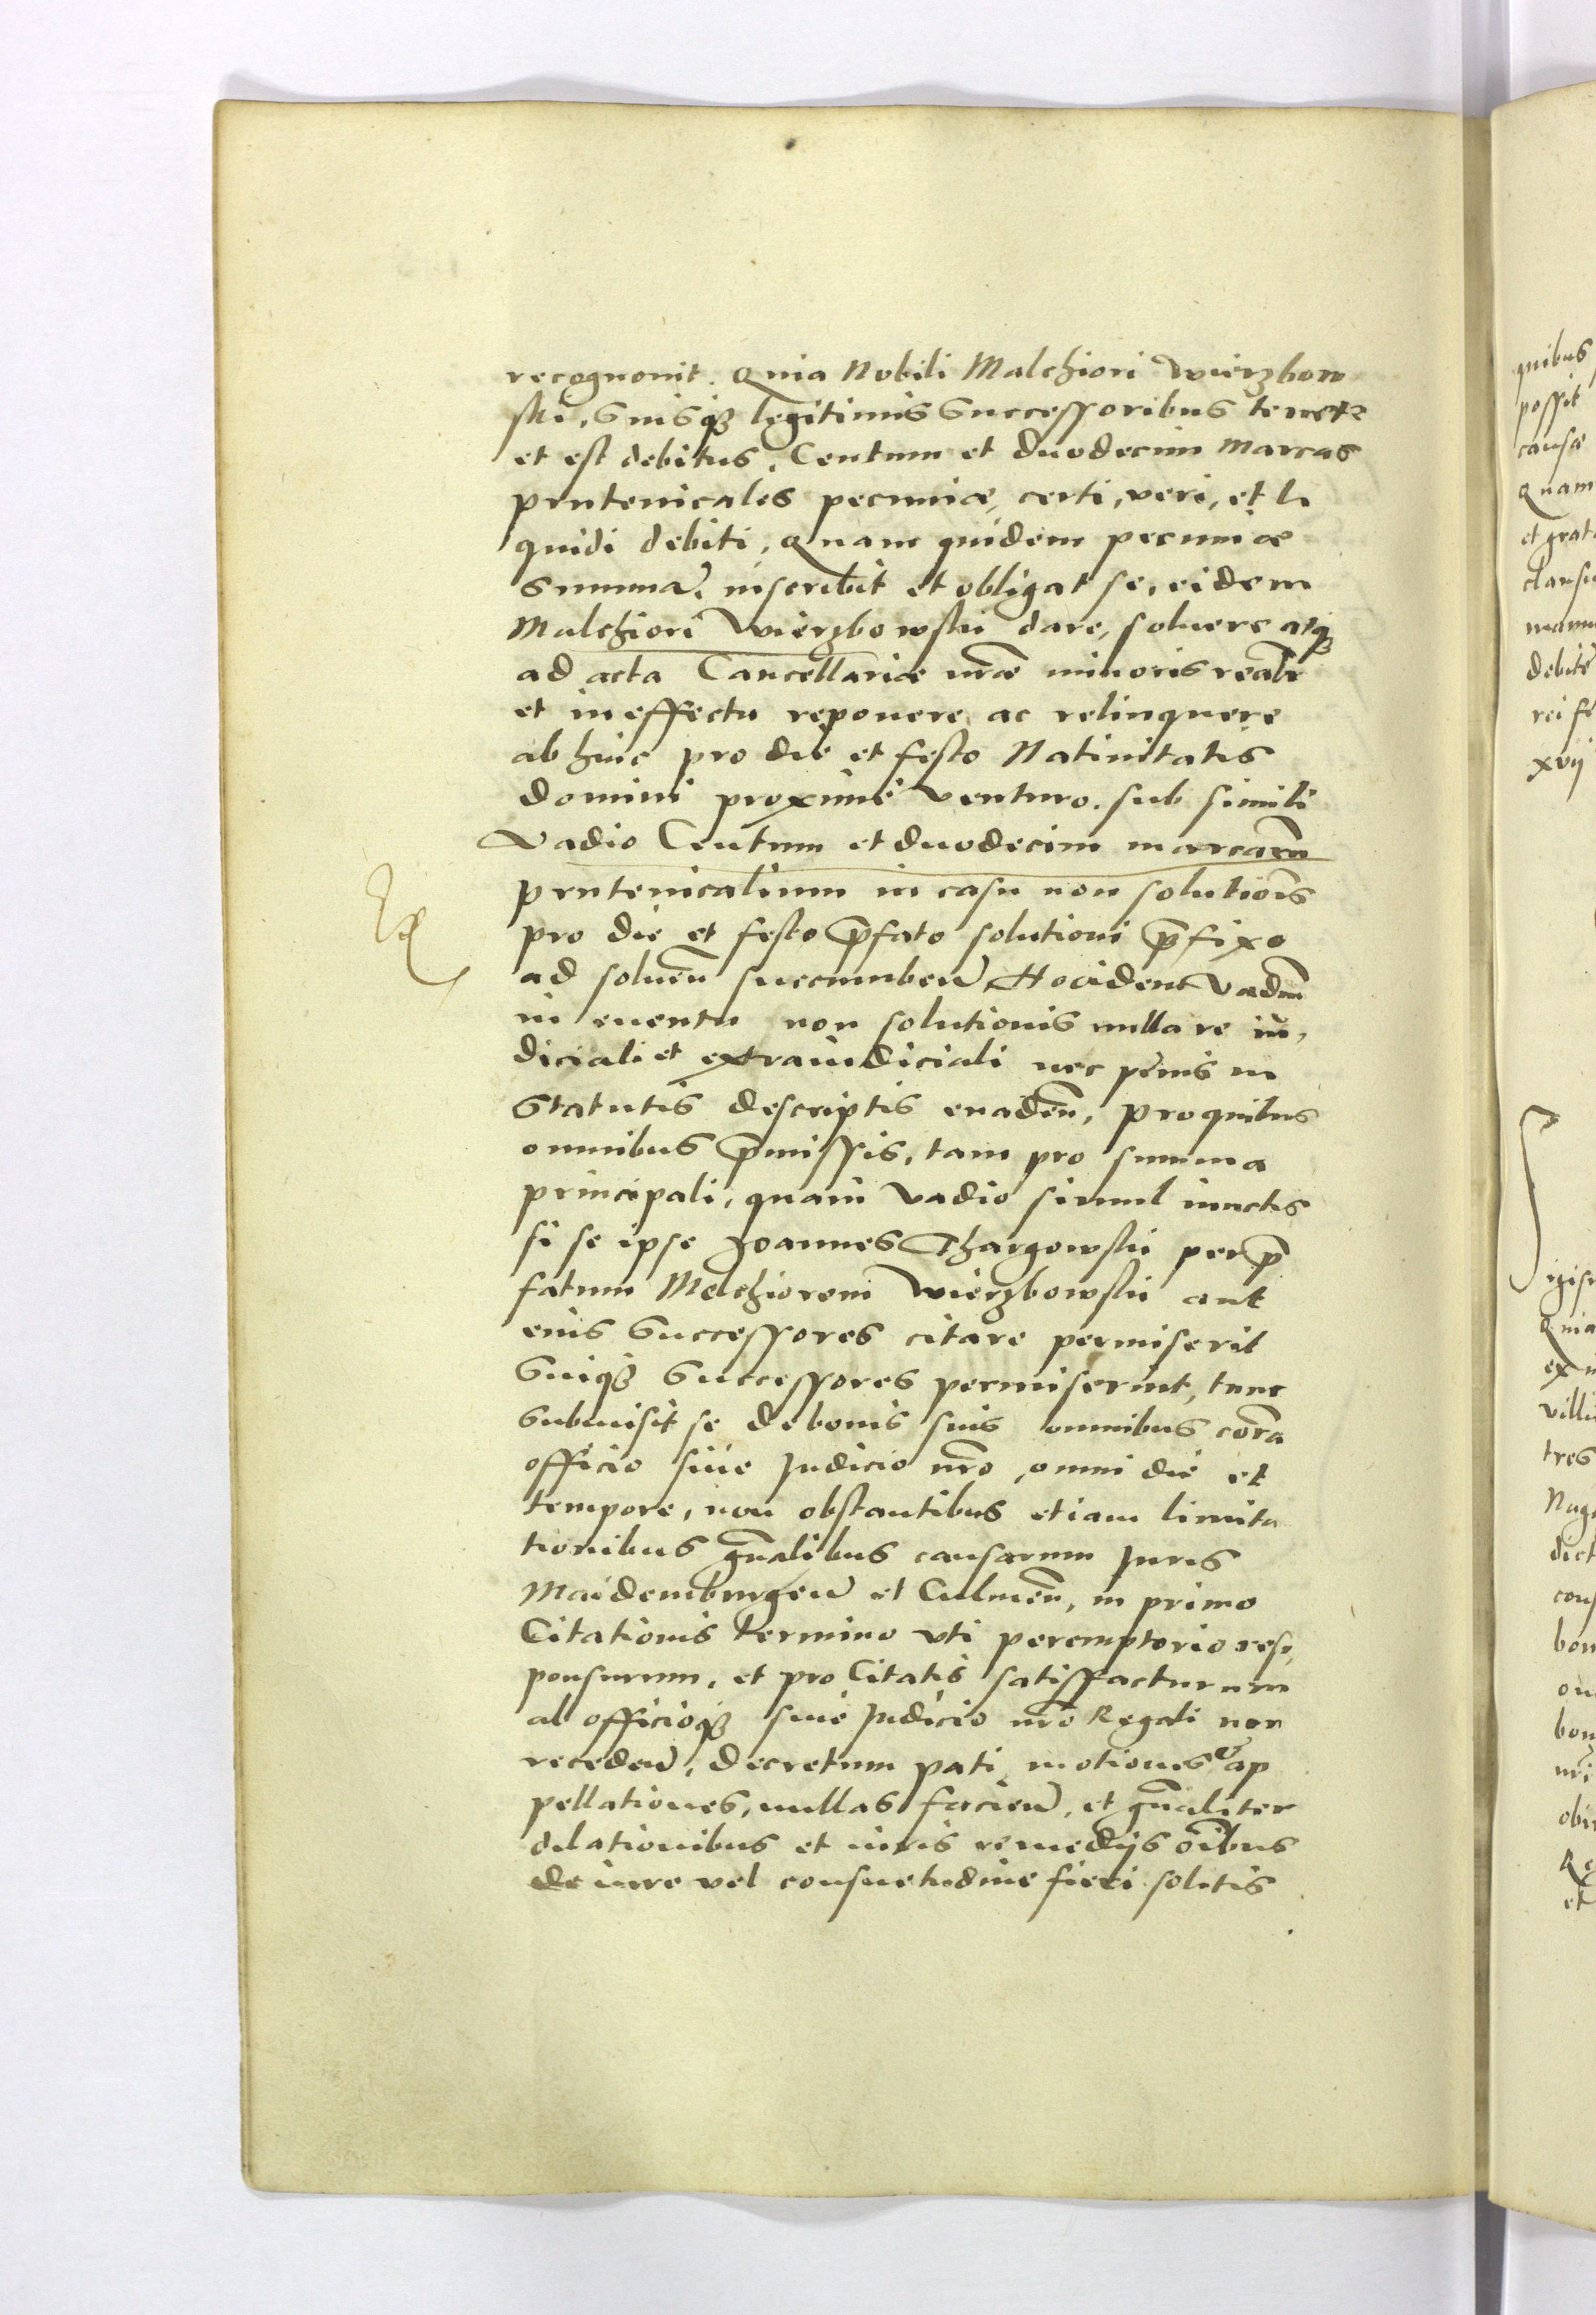 recognouit. Quia Nobili Malchiori Wierzbow
ski, Suisq3 legitimis Successoribus tenetr
et est debitus, Centum et duodecim Marcas
prutenicales pecuniæ, certi, veri, et li
quidi debiti, Quam quidem pecuniæ
Summã, inscribit et obligat se, eidem
Malchiori Wierzbowski dare, soluere atq3
ad acta Cancellariæ nræ minoris realr
et in effectu reponere ac relinquere
ab hinc pro die et festo Natiuitatis
domini proximè venturo. sub simili
Vadio Centum et duodecim marcarũ
prutenicalium in casu non solutiõis
pro die et festo p̃fato solutioni p̃fixo
ad soluẽn succumbeñ, Hocidem Vadiũ
in euentu non solutionis nulla re iu,
diciali et extraiudiciali nec penis in
Statutis descriptis euadẽn, pro quibus
omnibus p̃missis, tam pro summa
principali, quam vadio simul iunctis
si se ipse Joannes Thargowski per p̃
fatum Melchiorem Wierzbowski aut
eius Successores citare permiserit
Suiq3 Successores permiserint, tunc
Submisit se de bonis suis omnibus corã
officio siue Judicio nr̃o, omni die et
tempore, non obstantibus etiam limita
tionibus gñalibus causarum Juris
Maidemburgeñ et Culmẽn, in primo
Citationis termino vti peremptorio resp,
ponsurum, et pro Citatis satisfacturum
ab officioq3 siue Judicio nr̃o Regali non
recedeñ, decretum pati, motiones et ap
pellationes, nullas facieñ, et gñaliter
dilationibus et iuris remedijs oĩbus
de iure vel consuetudine fieri solitis
quibus
possit
causæ
Quam
et grat
debitè
xvij
Quia
tres
et